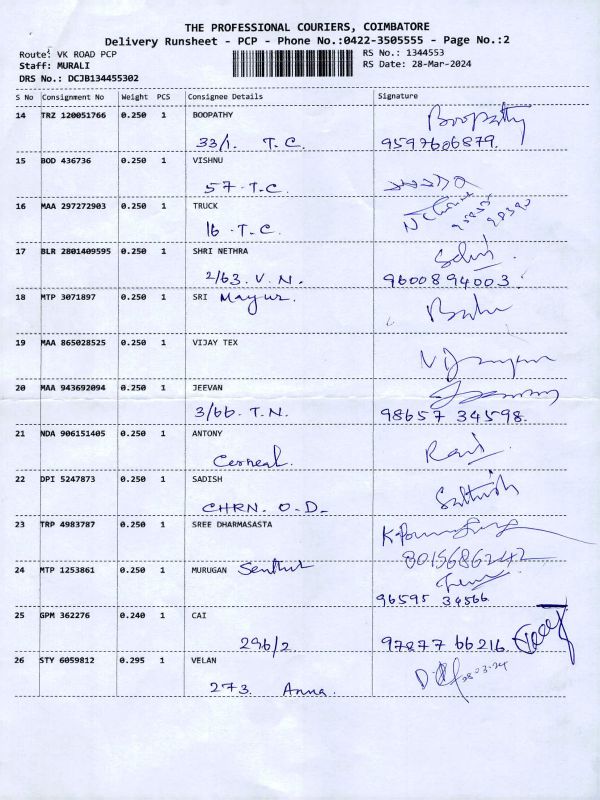 THE PROFESSIONAL COURIERS, COIMBATORE
Delivery Runsheet - PCP - Phone No.:0422-3505555 - Page No.:2
Route: VK ROAD PCP
RS No.: 1344553
Staff: MURALI
RS Date: 28-Mar-2024
DRS No.: DCJB134455302
S No Consignment No Weight PCS Consignee Details Signature
14 TRZ 120051766 0.250 1 BOOPATHY Boopathy
33/1. T.C. 9597606879.
15 BOD 436736 0.250 1 VISHNU
57-T.C.
16 MAA 297272903 0.250 1 TRUCK
16-T.C.
17 BLR 2801409595 0.250 1 SHRI NETHRA
2/63. V.N. 9600894003.
18 MTP 3071897 0.250 1 SRI Mayur. Babu
19 MAA 865028525 0.250 1 VIJAY TEX
20 MAA 943692094 0.250 1 JEEVAN
3/66. T.N. 98657 34598.
21 NDA 906151405 0.250 1 ANTONY
22 DPI 5247873 0.250 1 SADISH Sathish
CHRN. O.D-
23 TRP 4983787 0.250 1 SREE DHARMASASTA
8015686242
24 MTP 1253861 0.250 1 MURUGAN Senthil
96595 34566
25 GPM 362276 0.240 1 CAI
296/2 97877 66216.
26 STY 6059812 0.295 1 VELAN 28-03-24
273. Anna.